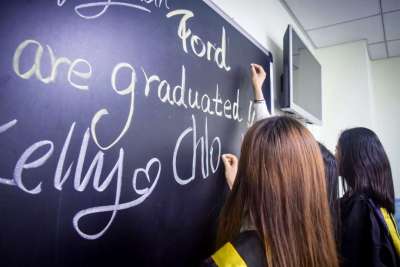 Ford
are graduated
Kelly Chlo